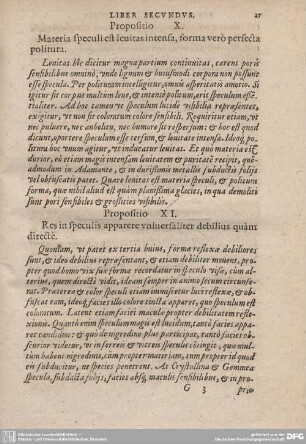 LIBER SECVNDVS. 21
Propositio X.
Materia speculi est leuitas intensa, forma verò perfecta
politura.
Leuitas hîc dicitur magna partium continuitas, carens poris
sensibilibus omninò, vnde lignum & huiusmodi corpora non possunt
esse specula. Per polituram intelligitur, omnis asperitatis amotio. Si
igitur sit corpus multùm leue, & intensè politum, erit speculum essen
tialiter. Ad hoc tamen vt speculum lucidè visibilia repræsentet,
exigitur, vt non sit coloratum colore sensibili. Requiritur etiam, vt
nec puluere, nec anhelitu, nec humore sit respersum: & hoc est quod
dicunt, oportere speculum esse tersum, & leuitate intensa. Ideoq́; poli
tura hoc vnum agitur, vt inducatur leuitas. Et quò materia est
durior, eò etiam magis intensam leuitatem & puritatem recipit, quẽ-
admodum in Adamante, & in durissimis metallis subductis folijs
vel obfuscatis patet. Quare leuitas est materia speculi, & politura
forma, quæ nihil aliud est quàm planissima glacies, in qua demoliti
sunt pori sensibiles & grossities visibilis.
Propositio XI.
Res in speculis apparere vniuersaliter debilius quàm
directè.
Quoniam, vt patet ex tertia huius, formæ reflexæ debiliores
sunt, & ideo debilius repræsentant, & etiam debiliter mouent, prop-
ter quod homo vix suæ formæ recordatur in speculo visæ, cùm al-
terius, quam directè vidit, ideam semper in animo secum circumfe-
rat. Præterea & color speculi etiam immiscetur luci reflexæ, & ob-
fuscat eam, ideoq́; facies illo colore tincta apparet, quo speculum est
coloratum. Latent etiam faciei maculæ propter debilitatem reflex-
ionis. Quantò enim speculum magis est lucidum, tantò facies appa-
ret candidior: & quò de nigredine plus participat, tantò facies ob-
scurior videtur, vt in ferreis & vitreis speculis cõtingit, quæ mul-
tùm habent nigredinis, cùm propter materiam, tum propter id quod
eis subducitur, ne species penetrent. At Crystallina & Gemmea
specula, subducta folijs, facies absq́; maculis sensibilibus, & in pro-
G 3 prio